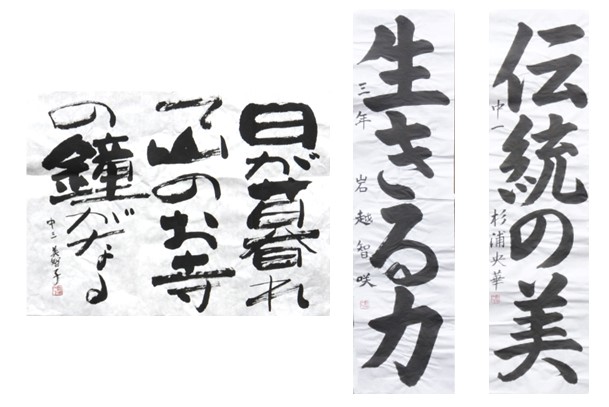 伝統の美
中一 杉浦央華
生きる力
三年 岩越智咲
日が暮れ
て山のお寺
の鐘がなる
中三 美智子